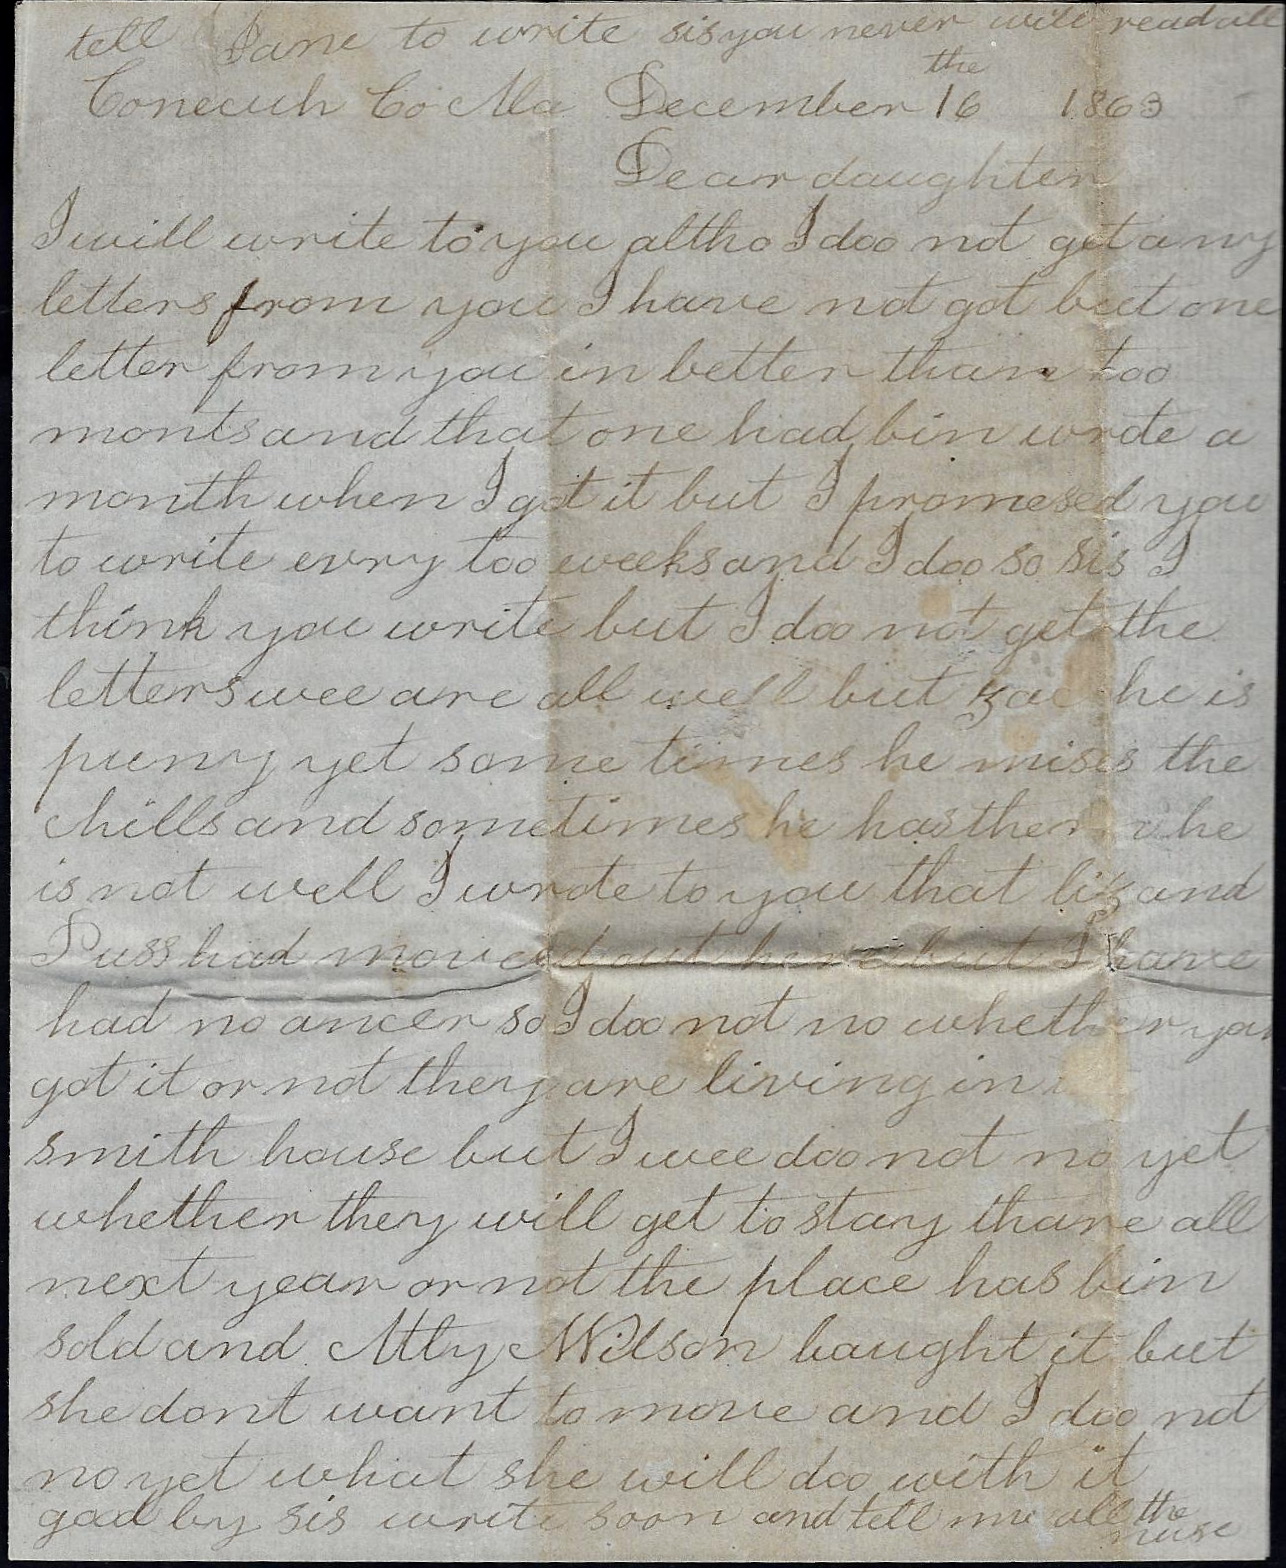 tell Jane to write sis you never will read all
Conecuh Co Ala December 16 the 1863
Dear daughter
I will write to you altho I doo not get any
letters from you I have not got but one
letter from you in better than too
monts and that one had bin wrote a
month when I got it but I promesed you
to write evry too weeks and I doo so sis I
think you write but I doo not get the
letters wee are all well but he is
puny yet some times he mises the
chills and sometimes he has them he
is not well I wrote to you that liz and
Puss had moved out here but I have
had no ancer so I doo not no whether you
got it or not they are living in
smith house but I wee doo not no yet
whether they will get to stay thare all
next year or not the place has bin
sold and Wilson baught it but
she dont want to move and I doo not
no yet what she will doo with it
good by sis write soon and tell me all the
nuse